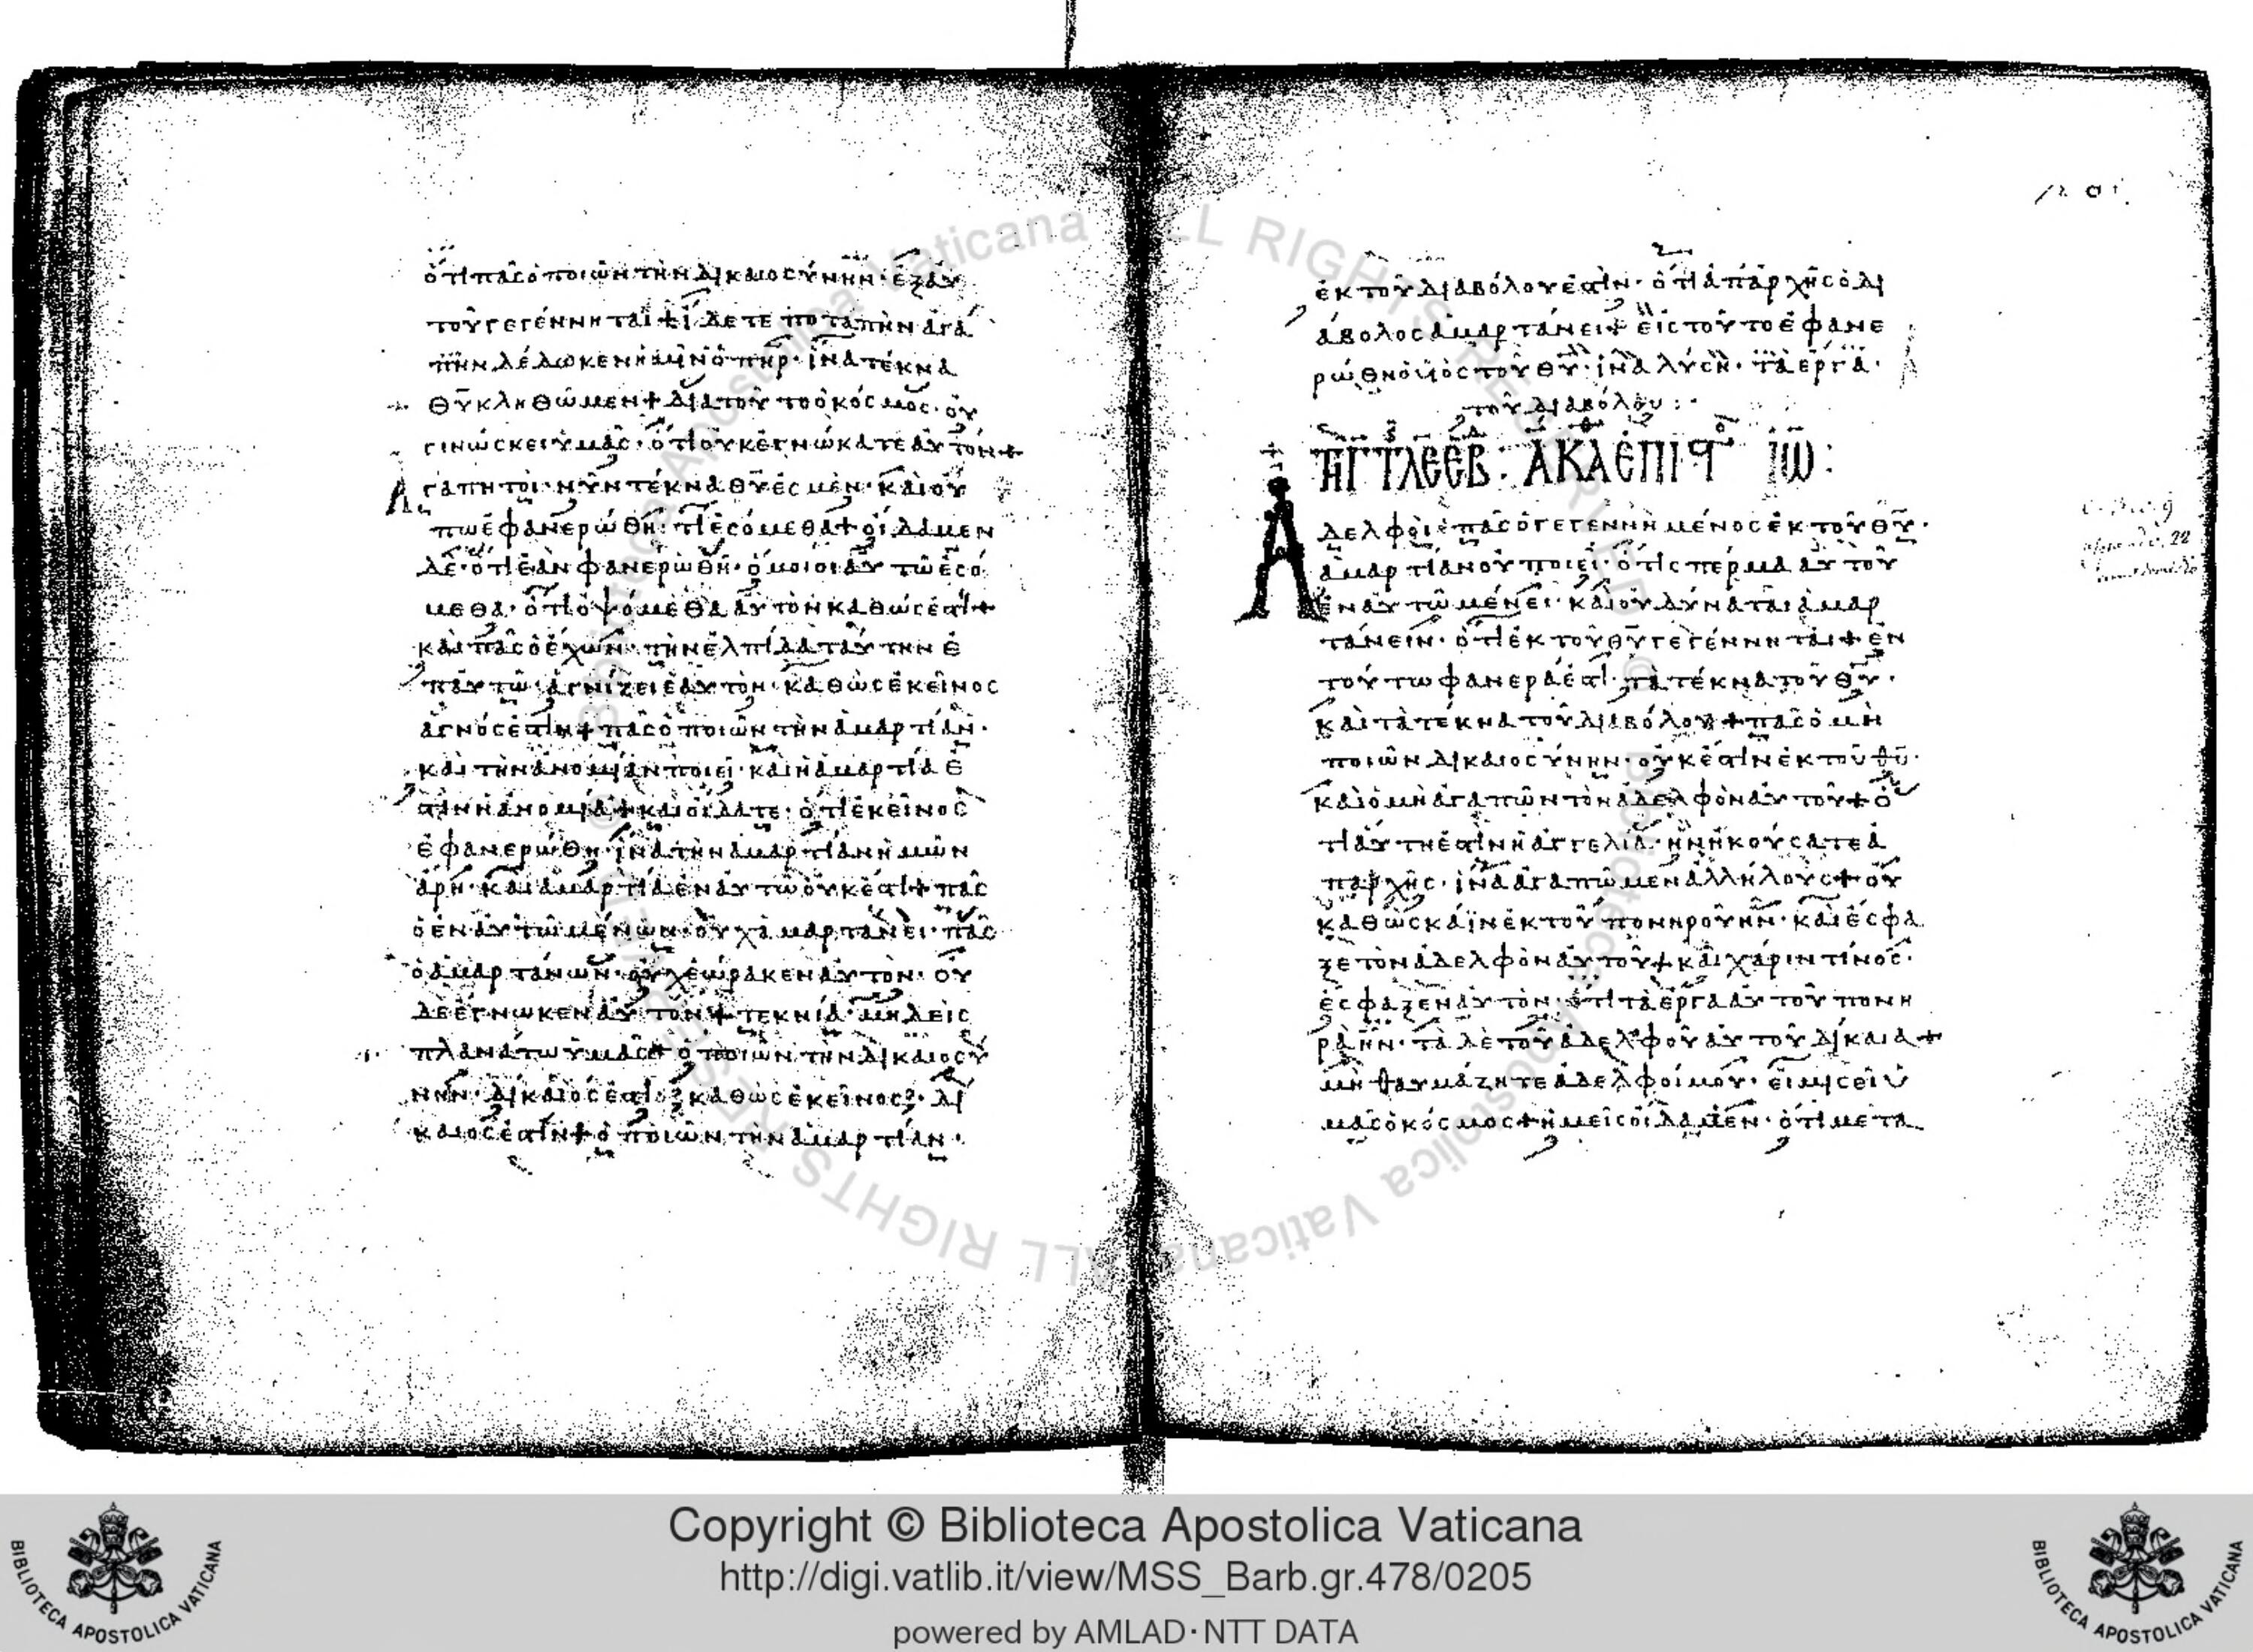 ὅτι πᾶς ὁ ποιῶν τὴν δικαιοσύνην· ἐξ αὐ
τοῦ γεγέννηται + ἴδετε ποταπὴν ἀγά
πην δέδωκεν ἡμῖν ὁ πηρ· ἵνα τέκνα
θῦ κληθῶμεν + διὰ τοῦτο ὁ κόσμος· οὐ
γινώσκει ὑμᾶς· ὅτι οὐκ ἔγνωκατε αὐτόν +
Ἀγαπητοί· νῦν τέκνα θῦ ἐσμὲν· καὶ οὔ
πω ἐφανερώθη· τί ἐσόμεθα + οἴδαμεν
δὲ· ὅτι ἐὰν φανερωθῆ· ὅμοιοι αὐτῶ ἐσό
μεθα· ὅτι ὀψόμεθα αὐτὸν καθώς ἐστι +
καὶ πᾶς ὁ ἔχων· τὴν ἐλπίδα ταύτην ἐ
π' αὐτῶ· ἁγνίζει ἑαυτὸν· καθὼς ἐκεῖνος
ἁγνός ἐστιν + πᾶς ὁ ποιῶν τὴν ἁμαρτίαν·
καὶ τὴν ἀνομίαν ποιεῖ· καὶ ἡ ἁμαρτία ἐ
στὶν ἡ ἀνομία + καὶ οἴδατε· ὅτι ἐκεῖνος
ἐφανερώθη· ἵνα τὴν ἁμαρτίαν ἡμῶν
ἄρη· καὶ ἁμαρτία ἐν αὐτῶ οὐκ ἔστι + πᾶς
ὁ ἐν αὐτῶ μένων· οὐχ ἁμαρτάνει· πᾶς
ὁ ἁμαρτάνων· οὐχ ἑώρακεν αὐτὸν· οὐ
δὲ ἔγνωκεν αὐτόν + τεκνία· μηδεὶς
πλανάτω ὑμᾶς + ὁ ποιῶν τὴν δικαιοσύ
νην· δίκαιός ἐστι· καθὼς ἐκεῖνος· δί
καιος ἐστὶν + ὁ ποιῶν τὴν ἁμαρτίαν·
ἐκ τοῦ διαβόλου ἐστὶν· ὅτι ἀπαρχῆς ὁ δι
άβολος ἁμαρτάνει + εἰς τοῦτο ἐφανε
ρώθη ὁ υἱὸς τοῦ θῦ· ἵνα λύση· τὰ ἔργα·
τοῦ διαβόλου :
Ἀδελφοὶ· πᾶς ὁ γεγεννημένος ἐκ τοῦ θῦ·
ἁμαρτίαν οὐ ποιεῖ· ὅτι σπέρμα αὐτοῦ
ἐν αὐτῶ μένει· καὶ οὐ δύναται ἁμαρ
τάνειν· ὅτι ἐκ τοῦ θῦ γεγέννηται + ἐν
τούτω φανερά ἐστι· τὰ τέκνα τοῦ θῦ·
καὶ τὰ τέκνα τοῦ διαβόλου + πᾶς ὁ μὴ
ποιῶν δικαιοσύνην· οὐκ ἔστιν ἐκ τοῦ θῦ·
καὶ ὁ μὴ ἀγαπῶν τὸν ἀδελφὸν αὐτοῦ + ὅ
τι αὕτη ἐστὶν ἡ ἀγγελία· ἣν ἠκούσατε ἀ
παρχῆς· ἵνα ἀγαπῶμεν ἀλλήλους + οὐ
καθὼς κάϊν ἐκ τοῦ πονηροῦ ἦν· καὶ ἔσφα
ξε τὸν ἀδελφὸν αὐτοῦ + καὶ χάριν τίνος·
ἔσφαξεν αὐτὸν· ὅτι τὰ ἔργα αὐτοῦ πονη
ρὰ ἦν· τὰ δὲ τοῦ ἀδελφοῦ αὐτοῦ δίκαια +
μὴ θαυμάζητε ἀδελφοί μου· εἰ μισεῖ ὑ
μᾶς ὁ κόσμος + ἡμεῖς οἴδαμεν· ὅτι μετα
Copyright © Biblioteca Apostolica Vaticana
http://digi.vatlib.it/view/MSS_Barb.gr.478/0205
powered by AMLAD·NTT DATA
BIBLIOTECA APOSTOLICA VATICANA
BIBLIOTECA APOSTOLICA VATICANA